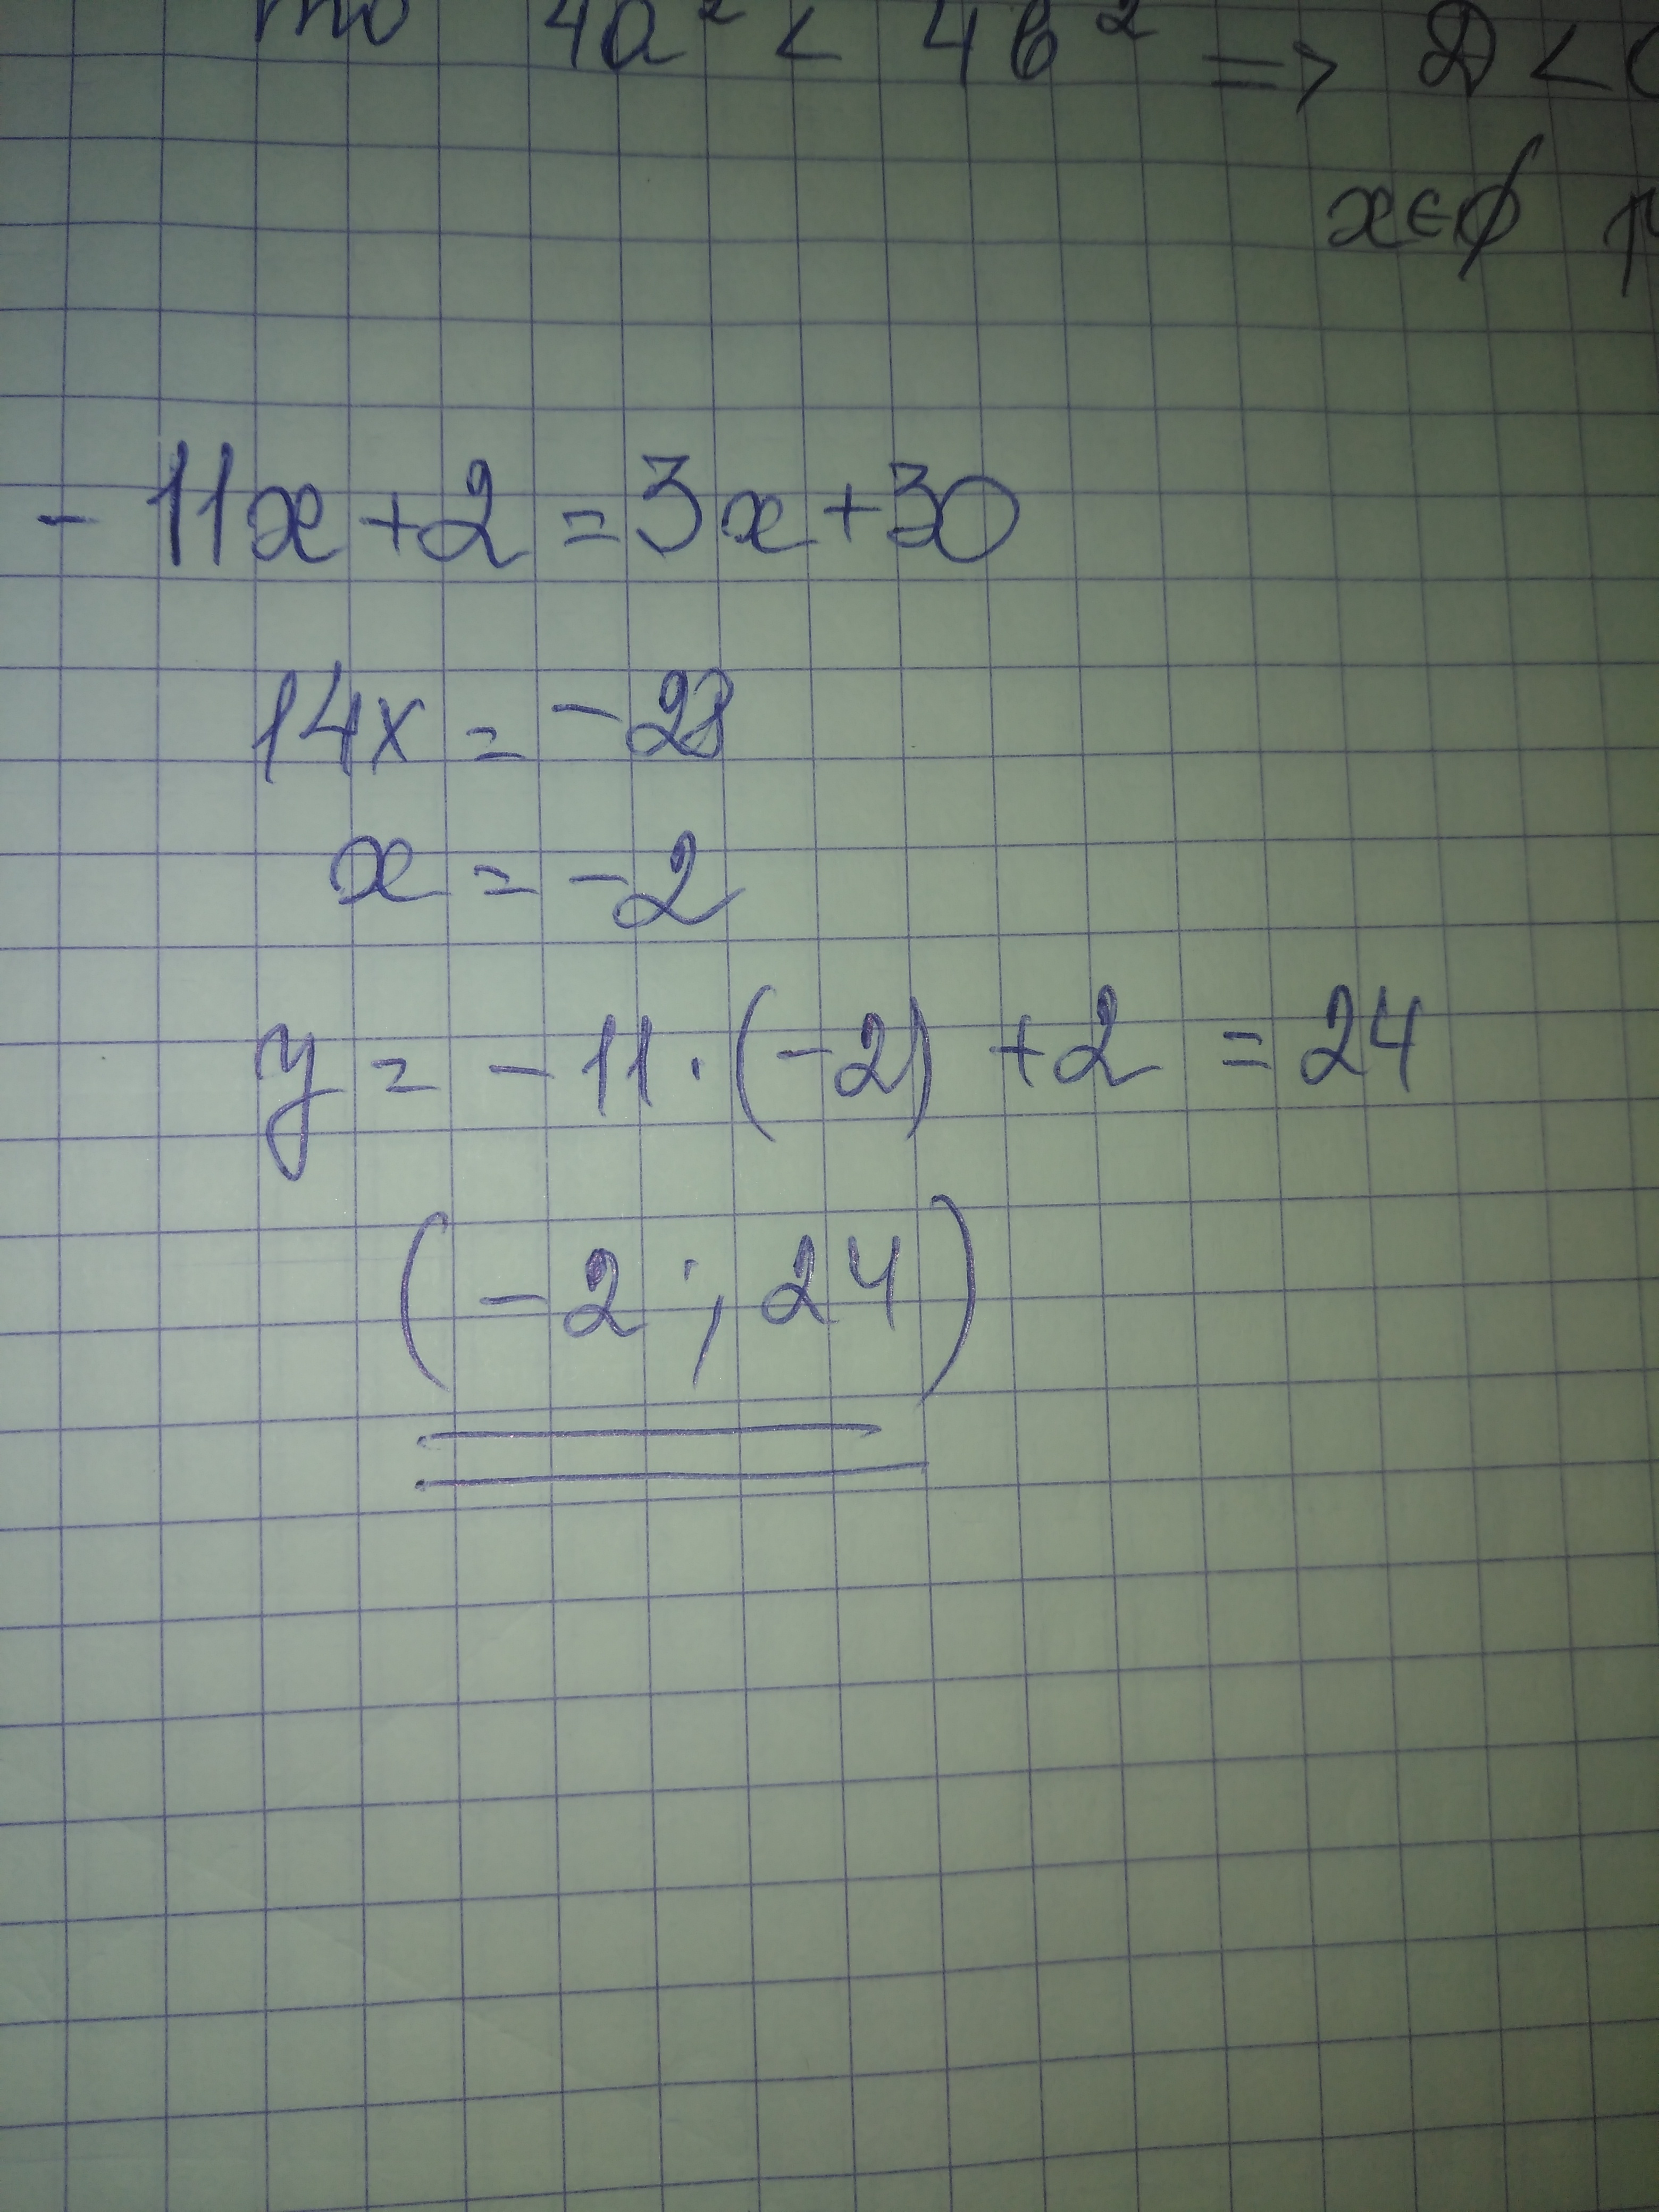 4a² < 4b² => D <
x∈∅
-11x+2=3x+30
14x = -28
x = -2
y = -11·(-2) +2 = 24
(-2 ; 24)